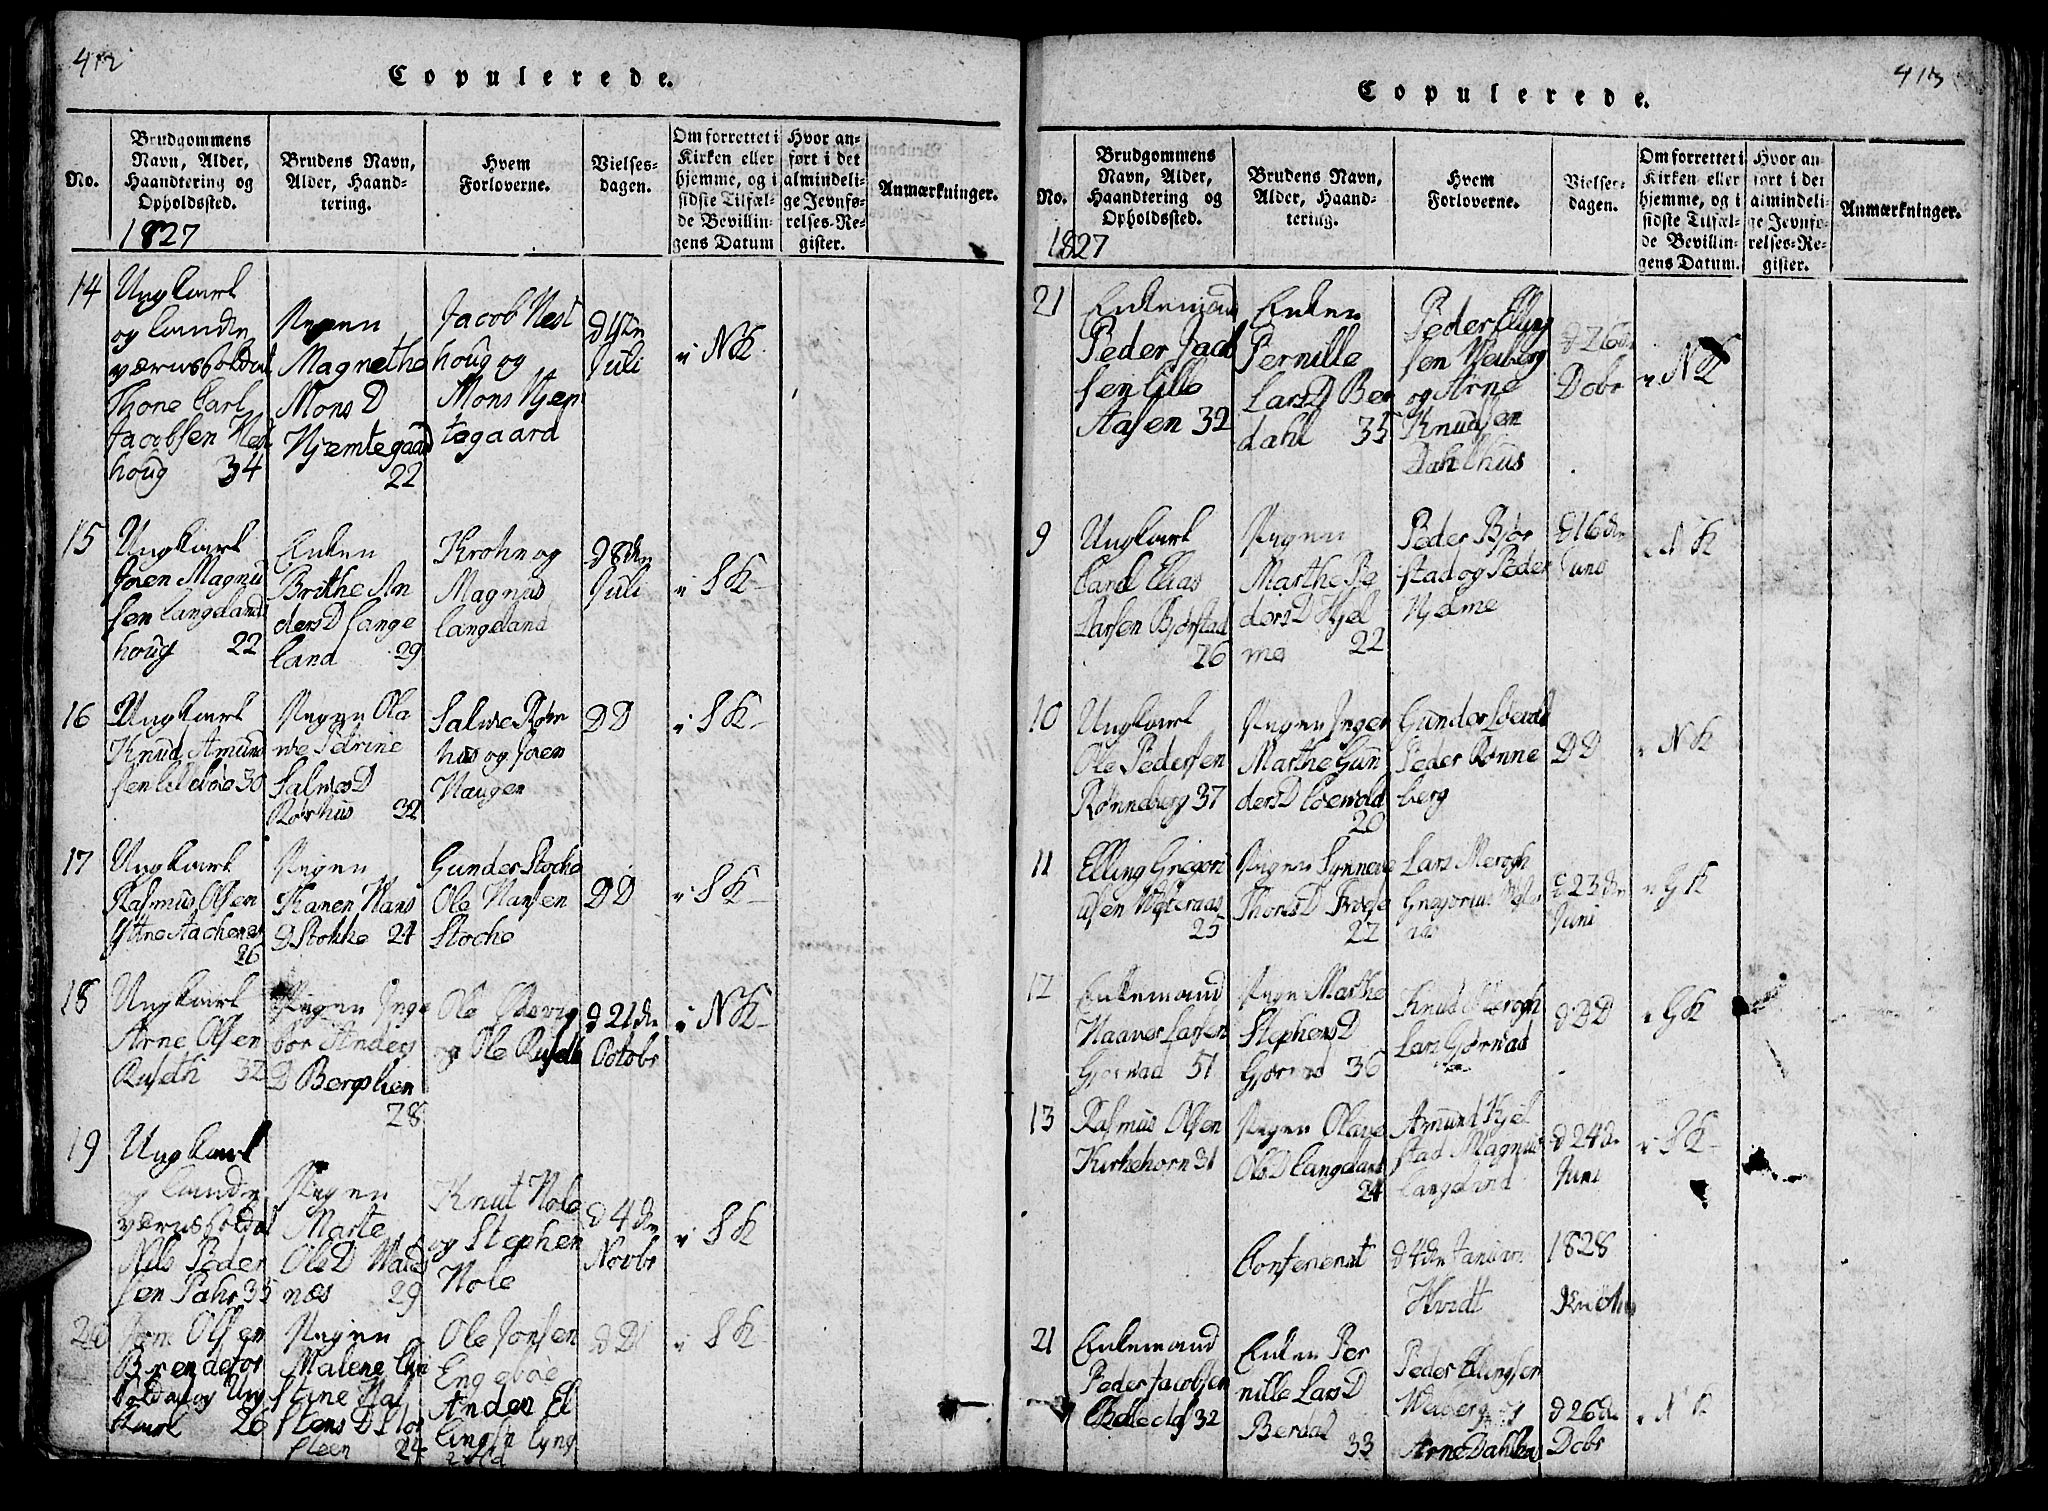 412
Copulerede.
No.
Brudgommens
Navn, Alder,
Haandtering og
Opholdssted.
1827
Brudens Navn,
Alder, Haand-
tering.
Hvem
Forloverne.
Vielses-
dagen.
Om forrettet i
Kirken eller
hjemme, og i
sidste Tilfæl-
de Bevillin-
gens Datum
Hvor an-
ført i det
almindeli-
ge Jevnfø-
relses-Re-
gister.
Anmærkninger.
14
Ungkarl
og Landte
værnssoldat
Thone Carl
Jacobsen Nest
houg 34
Pigen
Magnethe
Mons D
Hjemtegaard
22
Jacob Nest
houg og
Mons Hjen
tegaard
Juli
i NK
15
Ungkarl
Joen Magnu
sen Langelands
houg 22
Enken
Brithe An
ders D Lange
land 29
Krohn og
Magnus
Langeland
d 8de
Juli
i SK
16
Ungkarl
Knud Amund
sen Lillebøe 30
Pigen Ola
ve Petrine
Salves D
Rørhus 32
Salve Rør
hus og Joen
Haugen
DD
i SK
17
Ungkarl
Rasmus Olsen
Yttre Aachenes
26
Pigen
Karen Hans
D Stokke 24
Gunder Stoche
Ole Hansen
Stoche
DD
i SK
18
Ungkarl
Arne Olsen
Ruseth 32
Pigen Inge
bor Anders
D Bergslien
28
Ole
og Ole Ruseth
d 21de
Octobr
i NK
19
Ungkarl
og Landte
værnssoldat
Nils Peder
sen Pahr 35
Pigen
Marte
Ols D
næs 29
Knut Nole
og Stephen
Nole
d 4de
Novbr
i SK
20
Jorm Olsen
Brendefor
Soldat og Ung
karl 26
Pigen
Malene Chri
stine Hal
stens D Stor
steen 24
Ole Jonsen
Engebøe
Anders El
lingsen Lyng
dD
i SK
413
Copulerede.
No.
1827
Brudgommens
Navn, Alder,
Haandtering og
Opholdssted.
Brudens Navn,
Alder, Haand-
tering.
Hvem
Forloverne.
Vielses-
dagen.
Om forrettet i
Kirken eller
hjemme, og i
sidste Tilfæl-
de Bevillin-
gens Datum.
Hvor an-
ført i det
almindeli-
ge Jevnfø-
relses-Re-
gister.
Anmærkninger.
21
Enkemand
Peder Jacob
sen Lille
Aasen 32
Enken
Pernille
Lars D Ber
dahl 35
Peder Elling
sen Weiberg
og Arne
Knudsen
Dahlhus
d 26de
Dcbr
i NK
9
Ungkarl
Carel Elias
Larsen Bjørstad
26
Pigen
Marthe Pe
ders D Hjel
me 22
Peder Bjør
stad og Peder
Hjelme
d 16de
Juni
i NK
10
Ungkarl
Ole Pedersen
Rønneberg 37
Pigen Inger
Marthe Gun
ders D Loevold
20
Gunder Loevold
Peder Rønne
berg
DD
i NK
11
Elling Gregori
usen Westeraas
25
Pigen Synneve
Thores D
22
Lars Merogh
Gregorius
d 23de
Juni
i GK
12
Enkemand
Haaver Larsen
Gjørnad 51
Pigen Marthe
Stephens D
Gjørnad 36
Knud Merogh
Lars Gjørnad
d DD
i GK
13
Rasmus Olsen
Kirkehorn 31
Pigen Olave
Ols D Langeland
24
Amund Kjel
stad Magnus
Langeland
d 24de
Juni
i SK
Confereret d 4de Januari 1828
Hvidt
21
Enkemand
Peder Jacobsen
32
Enken Per
nille Lars D
Berdal
33
Peder Ellingsen
Weiberg og
Arne Dahlhus
d 26de
Dcbr
i NK